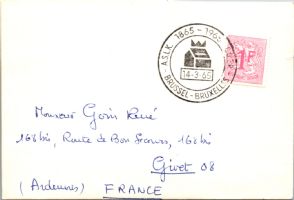 A.S.L.K. 1865-1965
14-3-65
BRUSSEL-BRUXELLES
1F
Monsieur Goin René
168 bis, Route de Bon Secours, 168 bis
Givet 08
(Ardennes) FRANCE